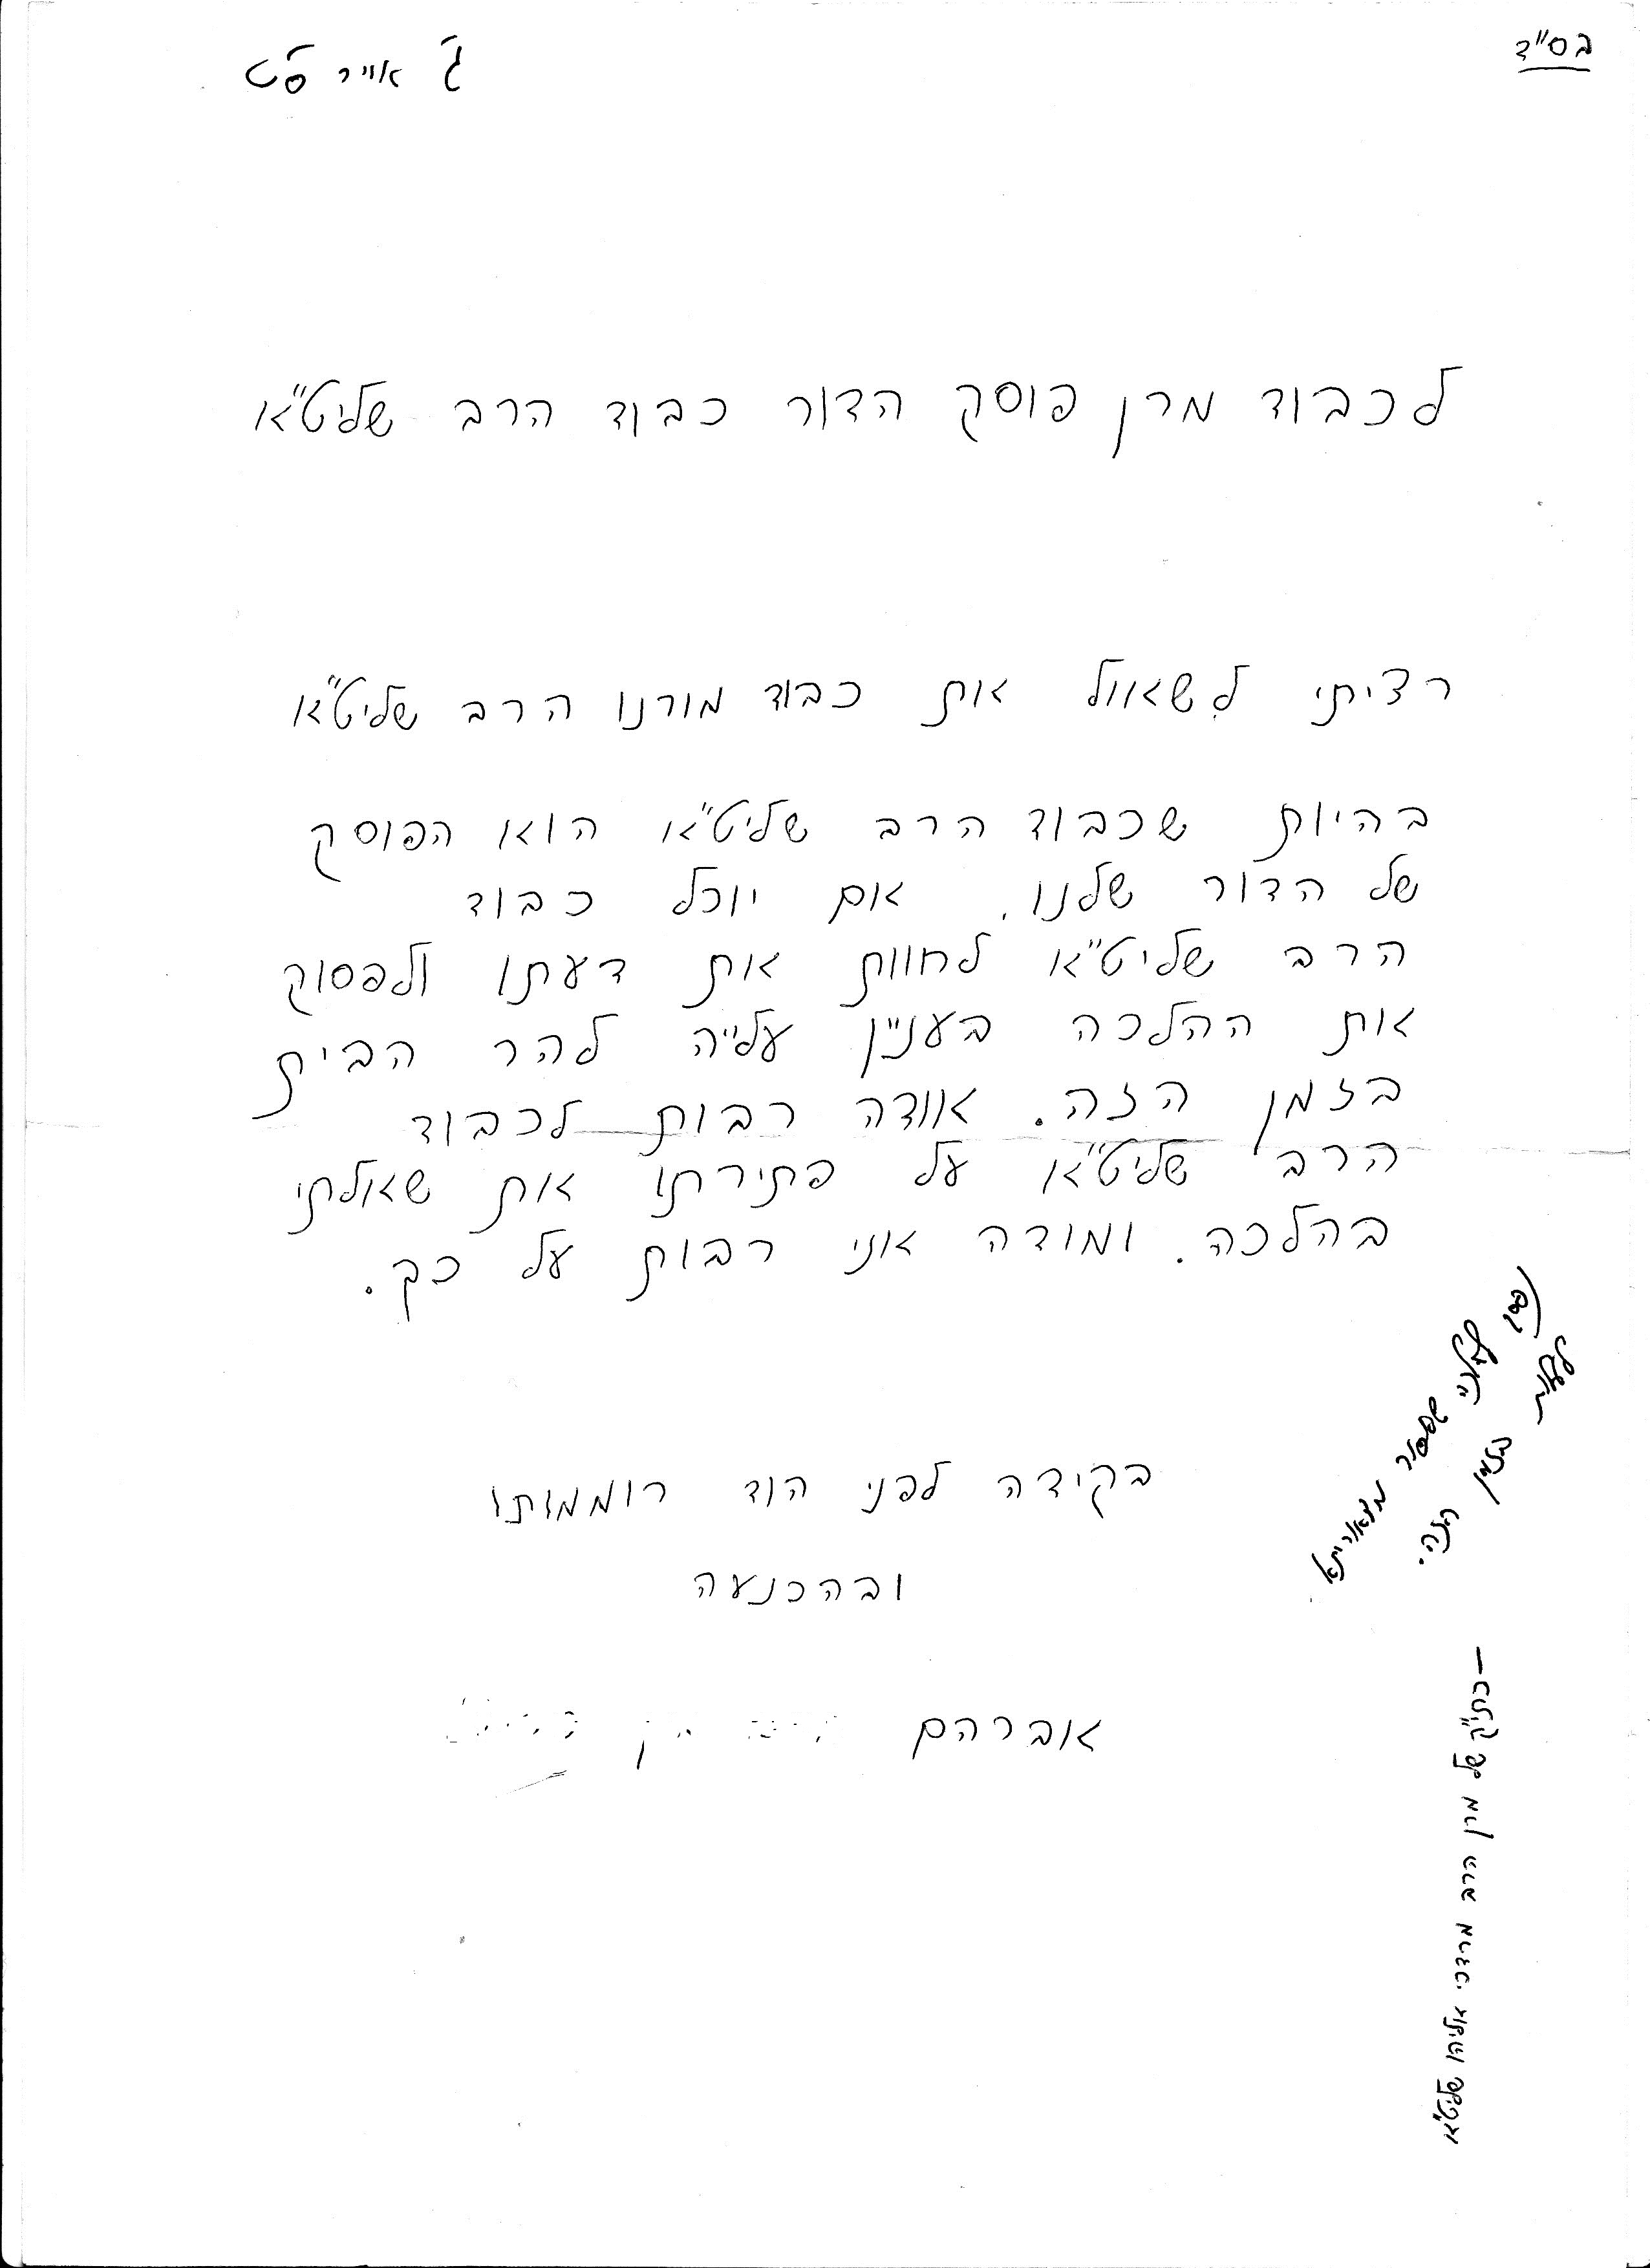 בס"ד
ג' אייר ס"ט
לכבוד מרן פוסק הדור כבוד הרב שליט"א
רציתי לשאול את כבוד מורנו הרב שליט"א
בהיות שכבוד הרב שליט"א הוא הפוסק
של הדור שלנו. אם יוכל כבוד
הרב שליט"א לחוות את דעתו ולפסוק
את ההלכה בעניין עלייה להר הבית
בזמן הזה. אודה רבות לכבוד
הרב שליט"א על פתירתו את שאלתי
בהלכה. ומודה אני רבות על כך.
בקידה לפני הוד רוממותו
ובהכנעה
אברהם
שאסור מדאוריתא
לעלות בזמן הזה.
- כתי"ק של מרן הרב מרדכי אליהו שליט"א